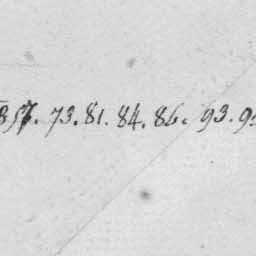 57. 73. 81. 84. 86. 93.